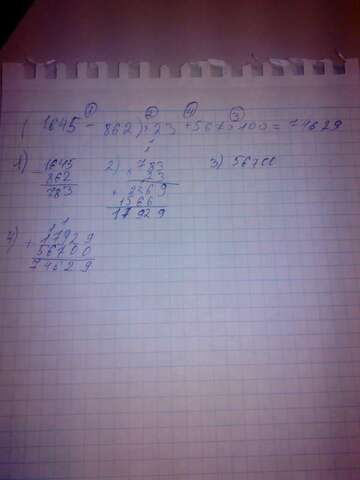 ① ② ④ ③
(1645 - 862) · 23 + 567 · 100 = 74629
1) 1645 2) 783 3) 56700
- 862 × 23
783 + 2369
1566
17929
4) + 17929
56700
74629